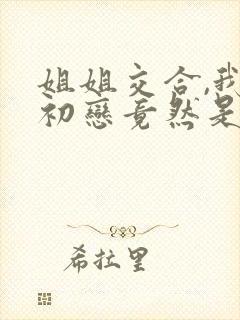 姐姐交合,我
初戀竟然是
希拉里